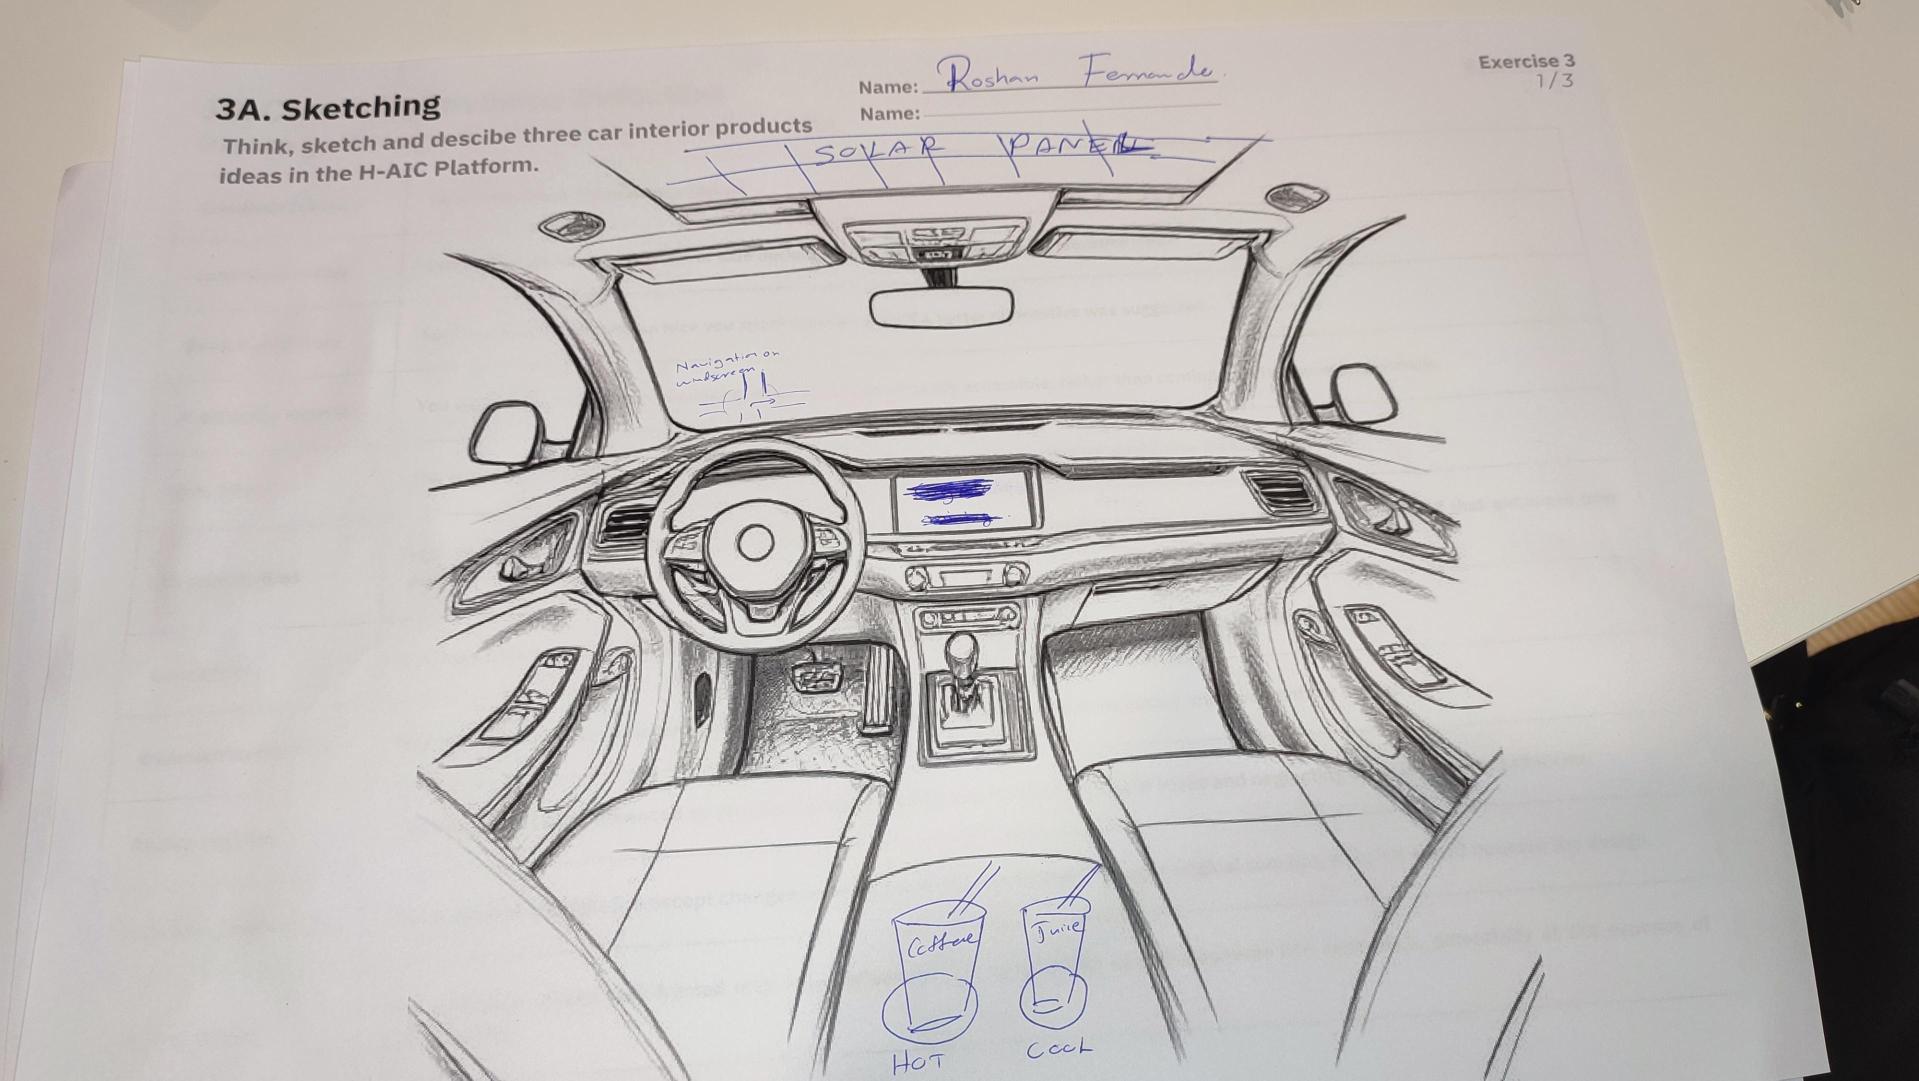 3A. Sketching
Think, sketch and descibe three car interior products
ideas in the H-AIC Platform.
Name: Roshan Fernande
Name:
Exercise 3
1/3
SOLAR PANEL
Navigation on
windscreen
Coffee
Juice
HOT
COOL